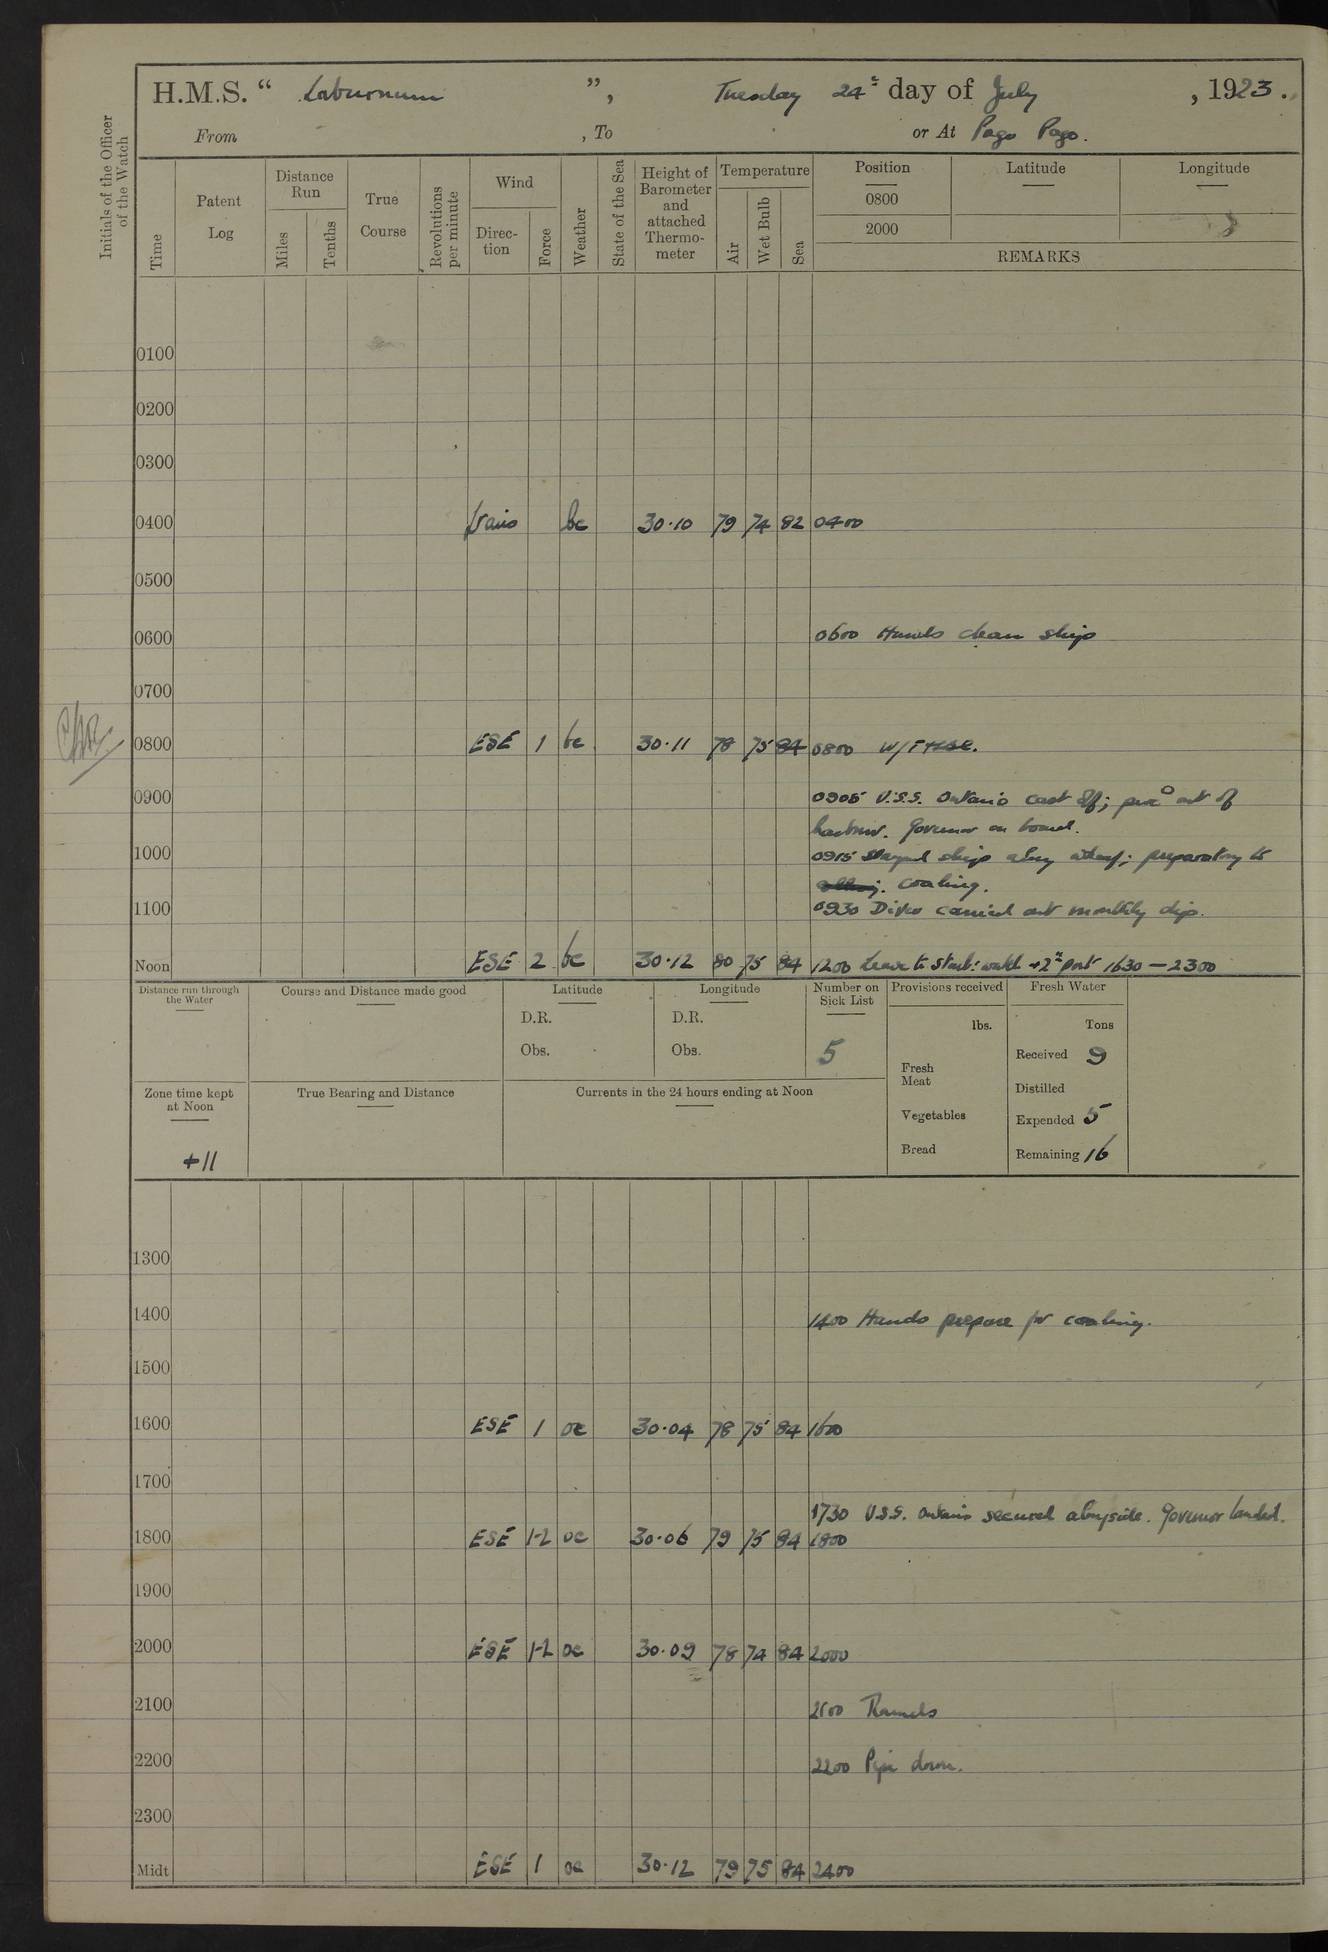 H.M.S. “ Laburnum ”, Tuesday 24th day of July , 1923.
From , To or At Pago Pago.
Initials of the Officer of the Watch
Time
Patent Log
Distance Run
Miles
Tenths
True Course
Revolutions per minute
Wind
Direc-tion
Force
Weather
State of the Sea
Height of Barometer and attached Thermo-meter
Temperature
Air
Wet Bulb
Sea
Position Latitude Longitude
0800
2000
REMARKS
0100
0200
0300
0400 bc 30.10 79 74 82 0400
0500
0600 0600 Hands clean ship
0700
0800 ESE 1 bc 30.11 78 75 84 0800
0900 0905 U.S.S. Ontario cast off; proc'd out of
harbour. Governor on board.
1000 0915 ship along wharf; preparatory to
coaling.
1100 0930 Diver carried out monthly dip.
Noon ESE 2 bc 30.12 80 75 84 1200 Leave to Starb: watch + 2nd part 1630 — 2300
Distance run through the Water
Course and Distance made good
Latitude
D.R.
Obs.
Longitude
D.R.
Obs.
Number on Sick List
5
Provisions received
lbs.
Fresh Meat
Vegetables
Bread
Fresh Water
Tons
Received 9
Distilled
Expended 5
Remaining 16
Zone time kept at Noon
+11
True Bearing and Distance
Currents in the 24 hours ending at Noon
1300
1400 1400 Hands prepare for coaling.
1500
1600 ESE 1 oc 30.04 78 75 84 1600
1700
1730 U.S.S. Ontario secured alongside. Governor landed.
1800 ESE 1-2 oc 30.06 79 75 84 1800
1900
2000 ESE 1-2 oc 30.09 78 74 84 2000
2100 2100 Rounds
2200 2200 Pipe down.
2300
Midt ESE 1 oc 30.12 79 75 84 2400